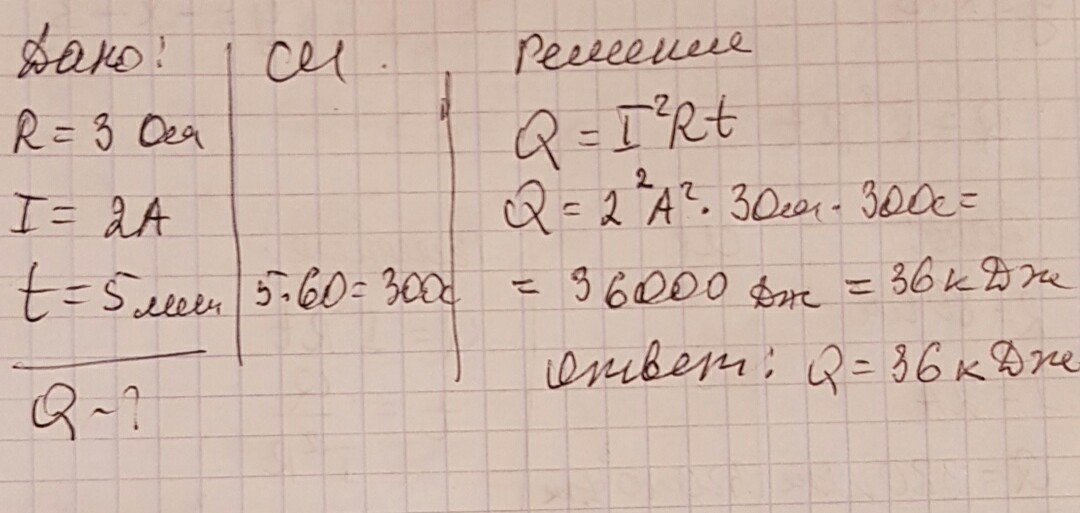 Дано:
R = 3 Ом
I = 2А
t = 5 мин
Q - ?
СИ
5·60 = 300с
Решение
Q = I²Rt
Q = 2²А² · 3Ом · 300с =
= 36000 Дж = 36 кДж
Ответ: Q = 36 кДж